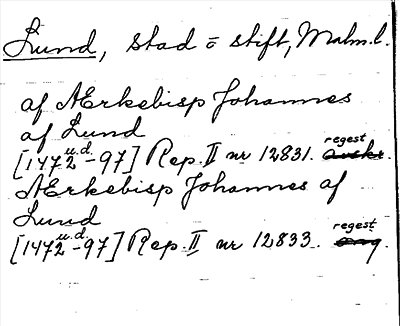 Lund, stad o stift, Malm. l.
af Ærkebisp Johannes
af Lund
u. d. regest
[1472-97] Rep. II nr 12831. avskr.
Ærkebisp Johannes af
Lund
u. d. regest
[1472-97] Rep. II nr 12833. orig.